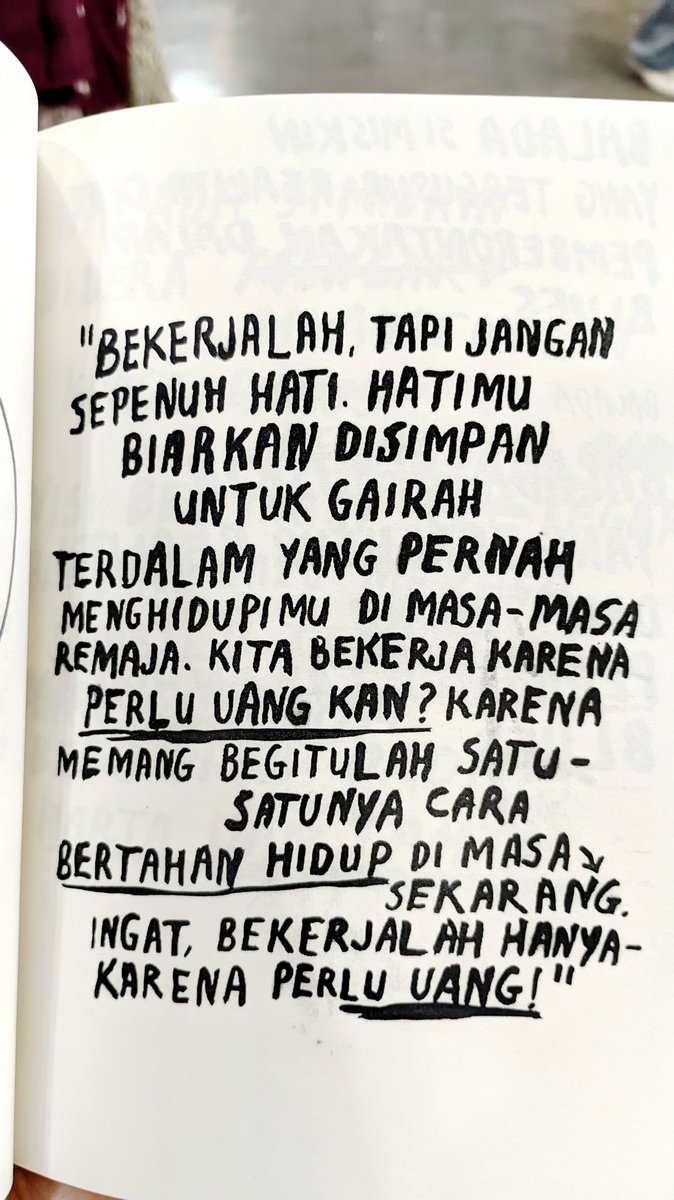 "BEKERJALAH, TAPI JANGAN
SEPENUH HATI. HATIMU
BIARKAN DISIMPAN
UNTUK GAIRAH
TERDALAM YANG PERNAH
MENGHIDUPIMU DI MASA-MASA
REMAJA. KITA BEKERJA KARENA
PERLU UANG KAN? KARENA
MEMANG BEGITULAH SATU-
SATUNYA CARA
BERTAHAN HIDUP DI MASA
SEKARANG.
INGAT, BEKERJALAH HANYA-
KARENA PERLU UANG!"
BALADA SI MISKIN
YANG